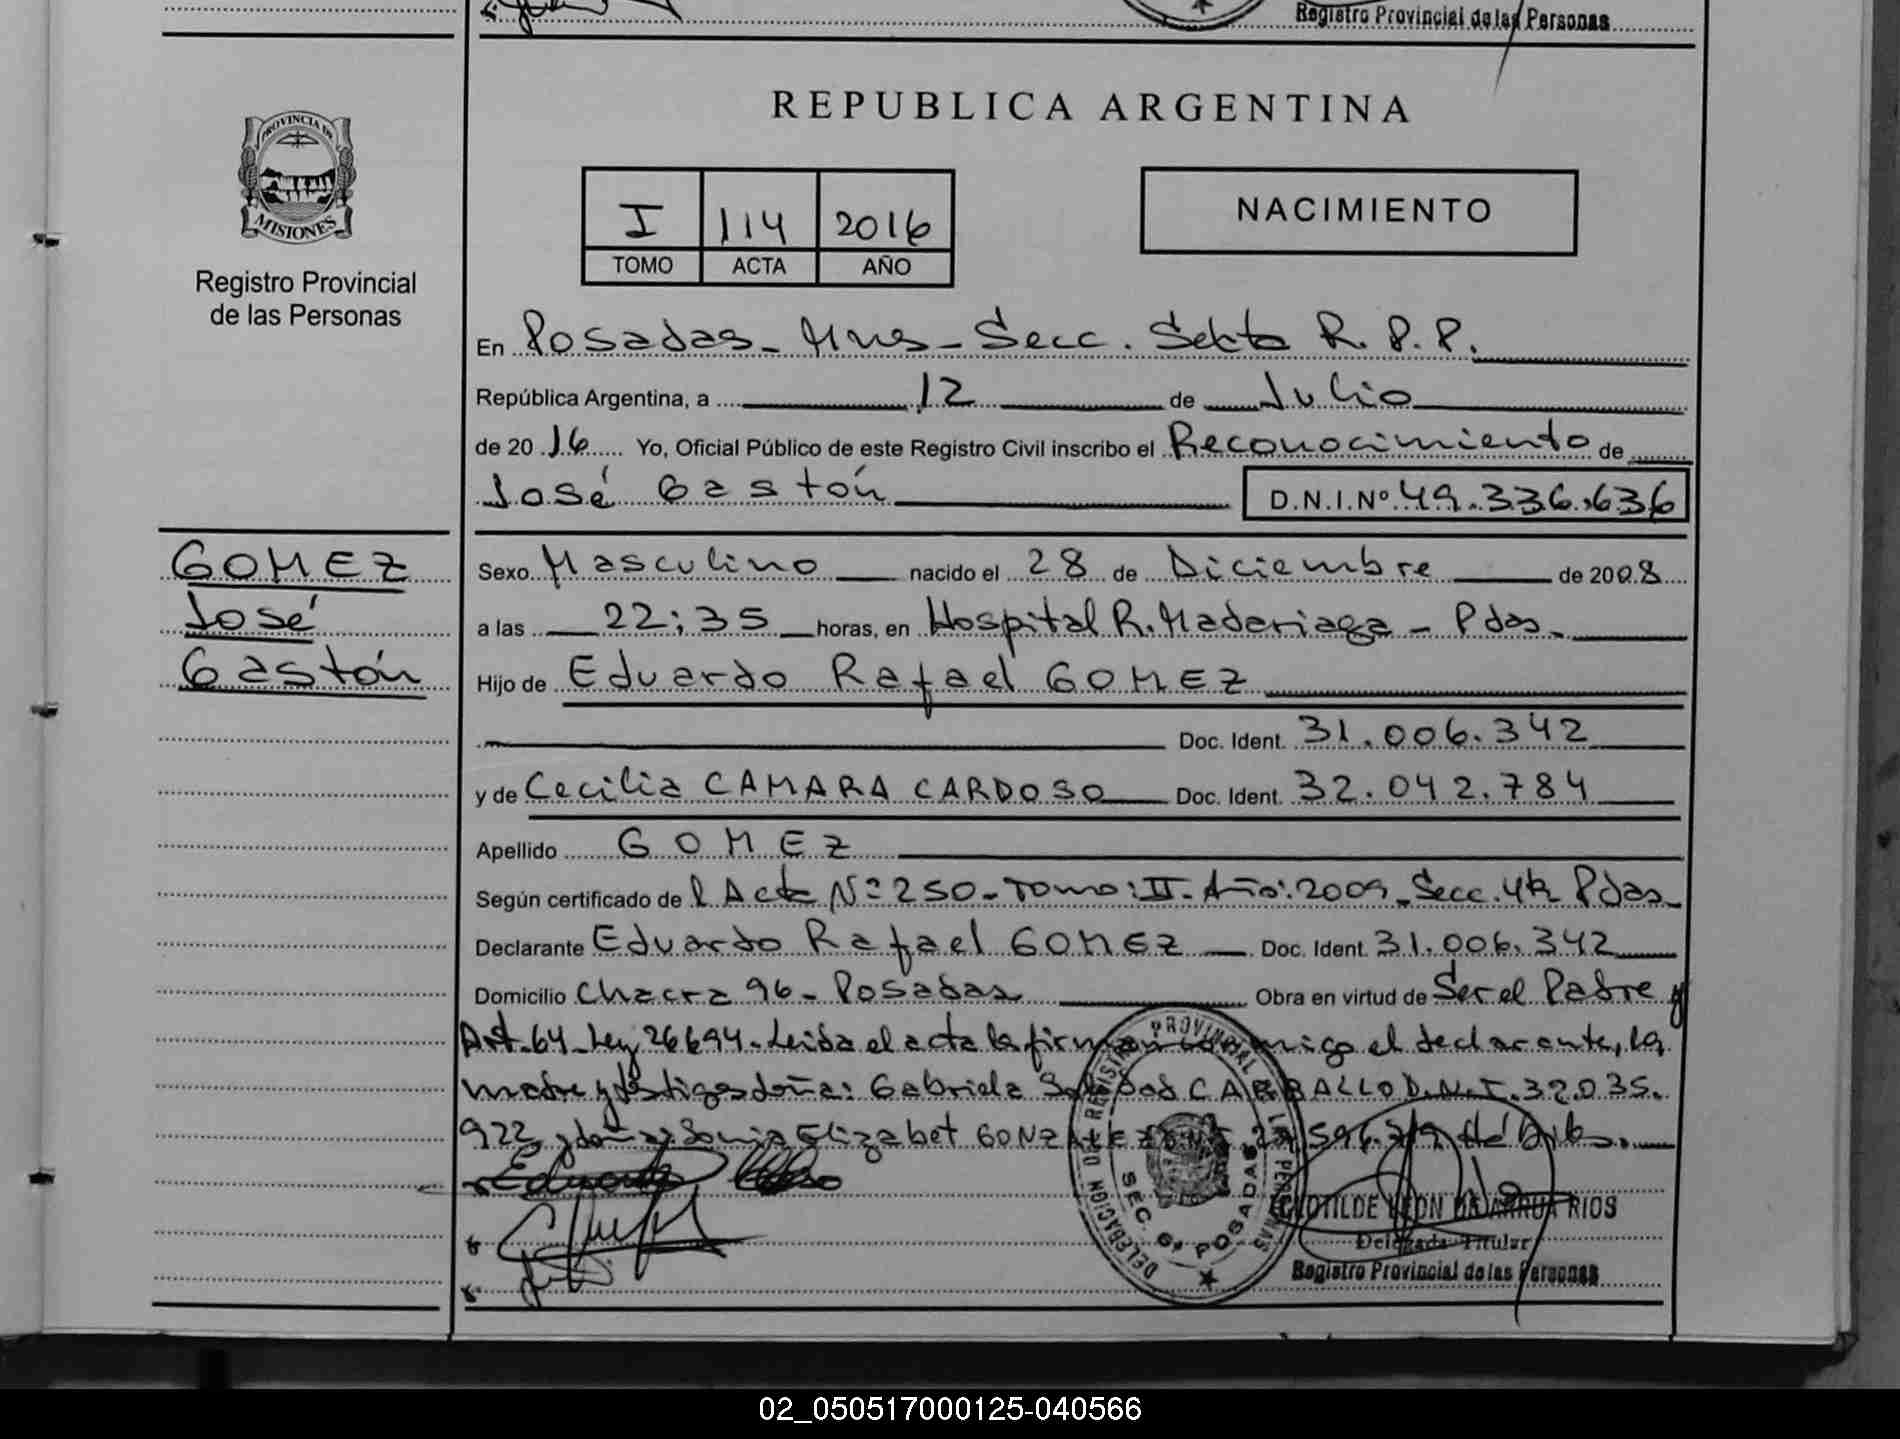 Registro Provincial de las Personas
REPUBLICA ARGENTINA
PROVINCIA DE
MISIONES
Registro Provincial
de las Personas
I 114 2016
TOMO ACTA AÑO
NACIMIENTO
En Posadas - Mnes - Secc. Sexta R.P.P.
República Argentina, a 12 de Julio
de 2016 Yo, Oficial Público de este Registro Civil inscribo el Reconocimiento de
José Gastón D.N.I.Nº 49.336.636
GOMEZ
José
Gastón
Sexo Masculino nacido el 28 de Diciembre de 2008
a las 22:35 horas, en Hospital R. Madariaga - Pdas.
Hijo de Eduardo Rafael GOMEZ
Doc. Ident. 31.006.342
y de Cecilia CAMARA CARDOSO Doc. Ident. 32.042.784
Apellido GOMEZ
Según certificado de l Acta Nº 250 - Tomo: II - Año: 2009 - Secc. 4ta Pdas.
Declarante Eduardo Rafael GOMEZ Doc. Ident. 31.006.342
Domicilio Chacra 96 - Posadas Obra en virtud de Ser el Padre y
Art. 64 - Ley 26694. Leida el acta la firman conmigo el declarante, la
madre y testigos doña: Gabriela Soledad CARBALLO D.N.I. 32.035.
922 y doña Sonia Elizabet GONZALEZ
DELEGACION DE REGISTRO PROVINCIAL DE LAS PERSONAS
SEC. 6ª POSADAS
CLOTILDE LEON DE ARRUA RIOS
Delegada Titular
Registro Provincial de las Personas
02_050517000125-040566